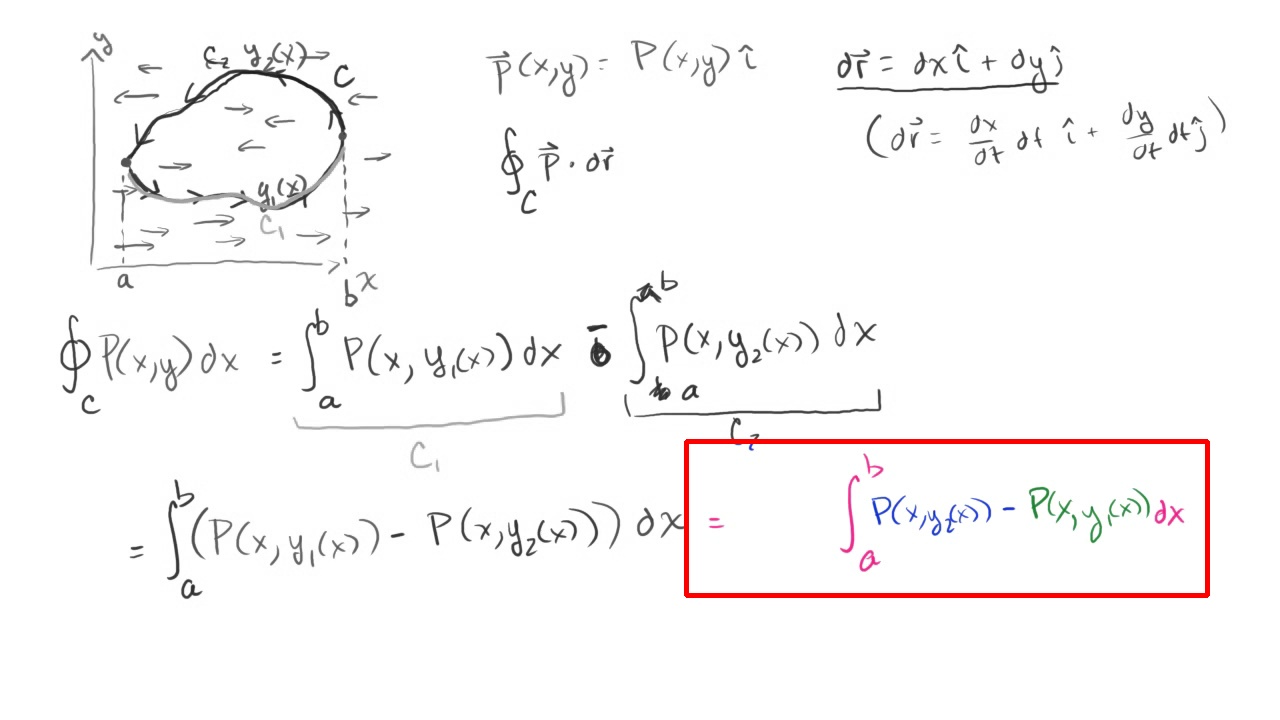 y
C₂ y₂(x)
C
y₁(x)
C₁
a
b x
p⃗(x,y) = P(x,y) î
∮_C p⃗ · dr⃗
dr⃗ = dx î + dy ĵ
(dr⃗ = dx/dt dt î + dy/dt dt ĵ)
∮_C P(x,y) dx = ∫_a^b P(x, y₁(x)) dx - ∫_a^b P(x, y₂(x)) dx
C₁
C₂
= ∫_a^b (P(x, y₁(x)) - P(x, y₂(x))) dx = ∫_a^b P(x, y₂(x)) - P(x, y₁(x)) dx